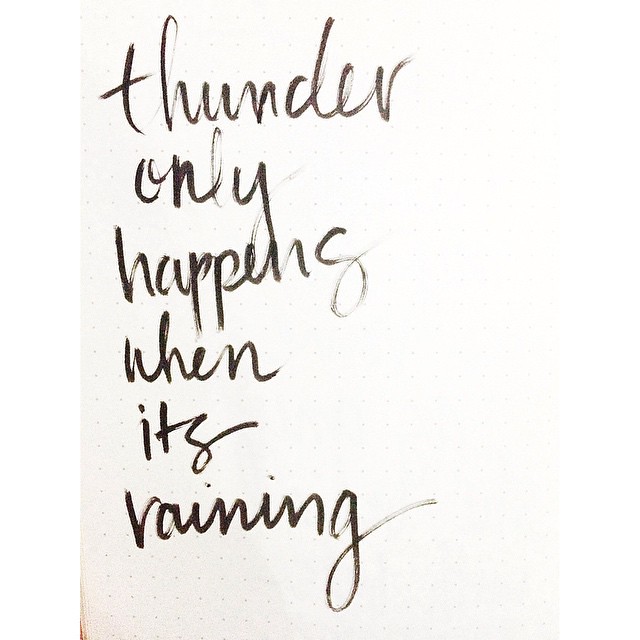 thunder
only
happens
when
its
raining